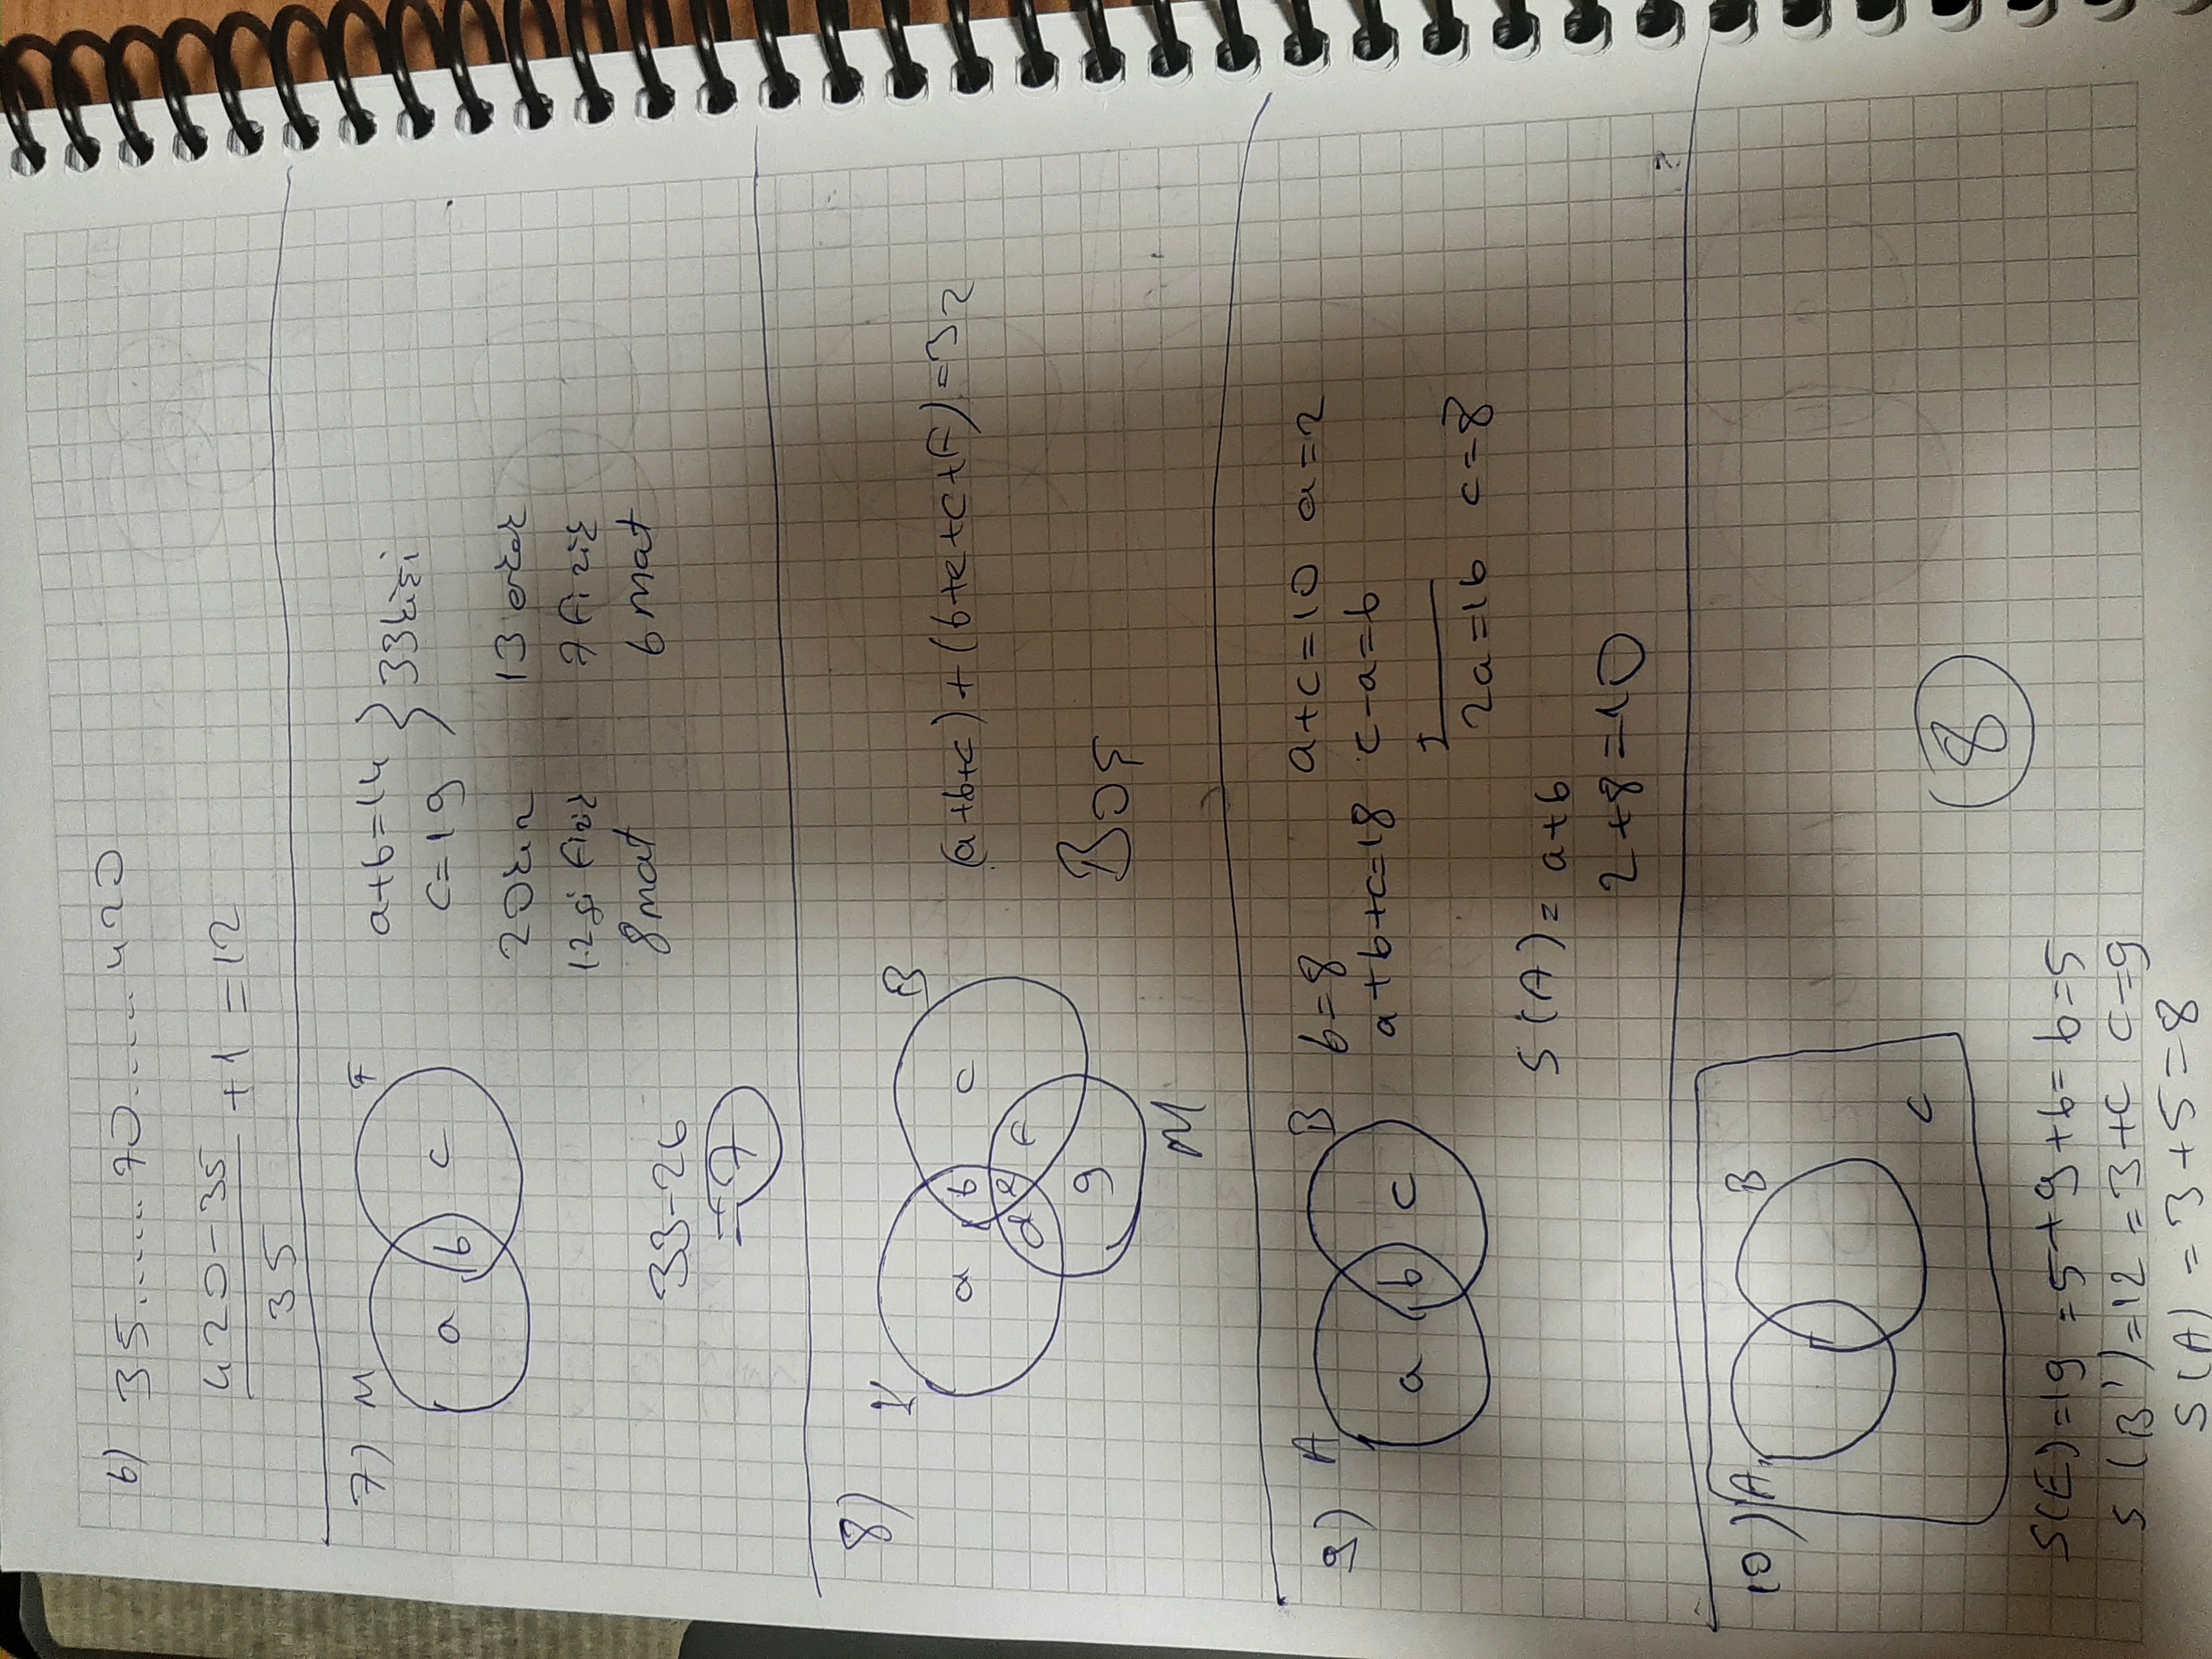 6) 35.........70.......420
420-35
35
+1=12
7) M
F
a
b
c
a+b=14
c=19
} 33kişi
20kız
13 erkek
12si fizik
7 fizik
8mat
6 mat
33-26
=7
8)
K
B
a
b
c
d
e
f
g
M
(a+b+c)+(b+e+c+f)=32
BOŞ
9) A
B
a
b
c
b=8
a+c=10 a=2
a+b+c=18 c-a=6
2a=16 c=8
S(A)=a+b
2+8=10
10) A
B
c
S(E)=19=5+9+b= b=5
S(B')=12=3+c c=9
S(A)=3+5=8
8